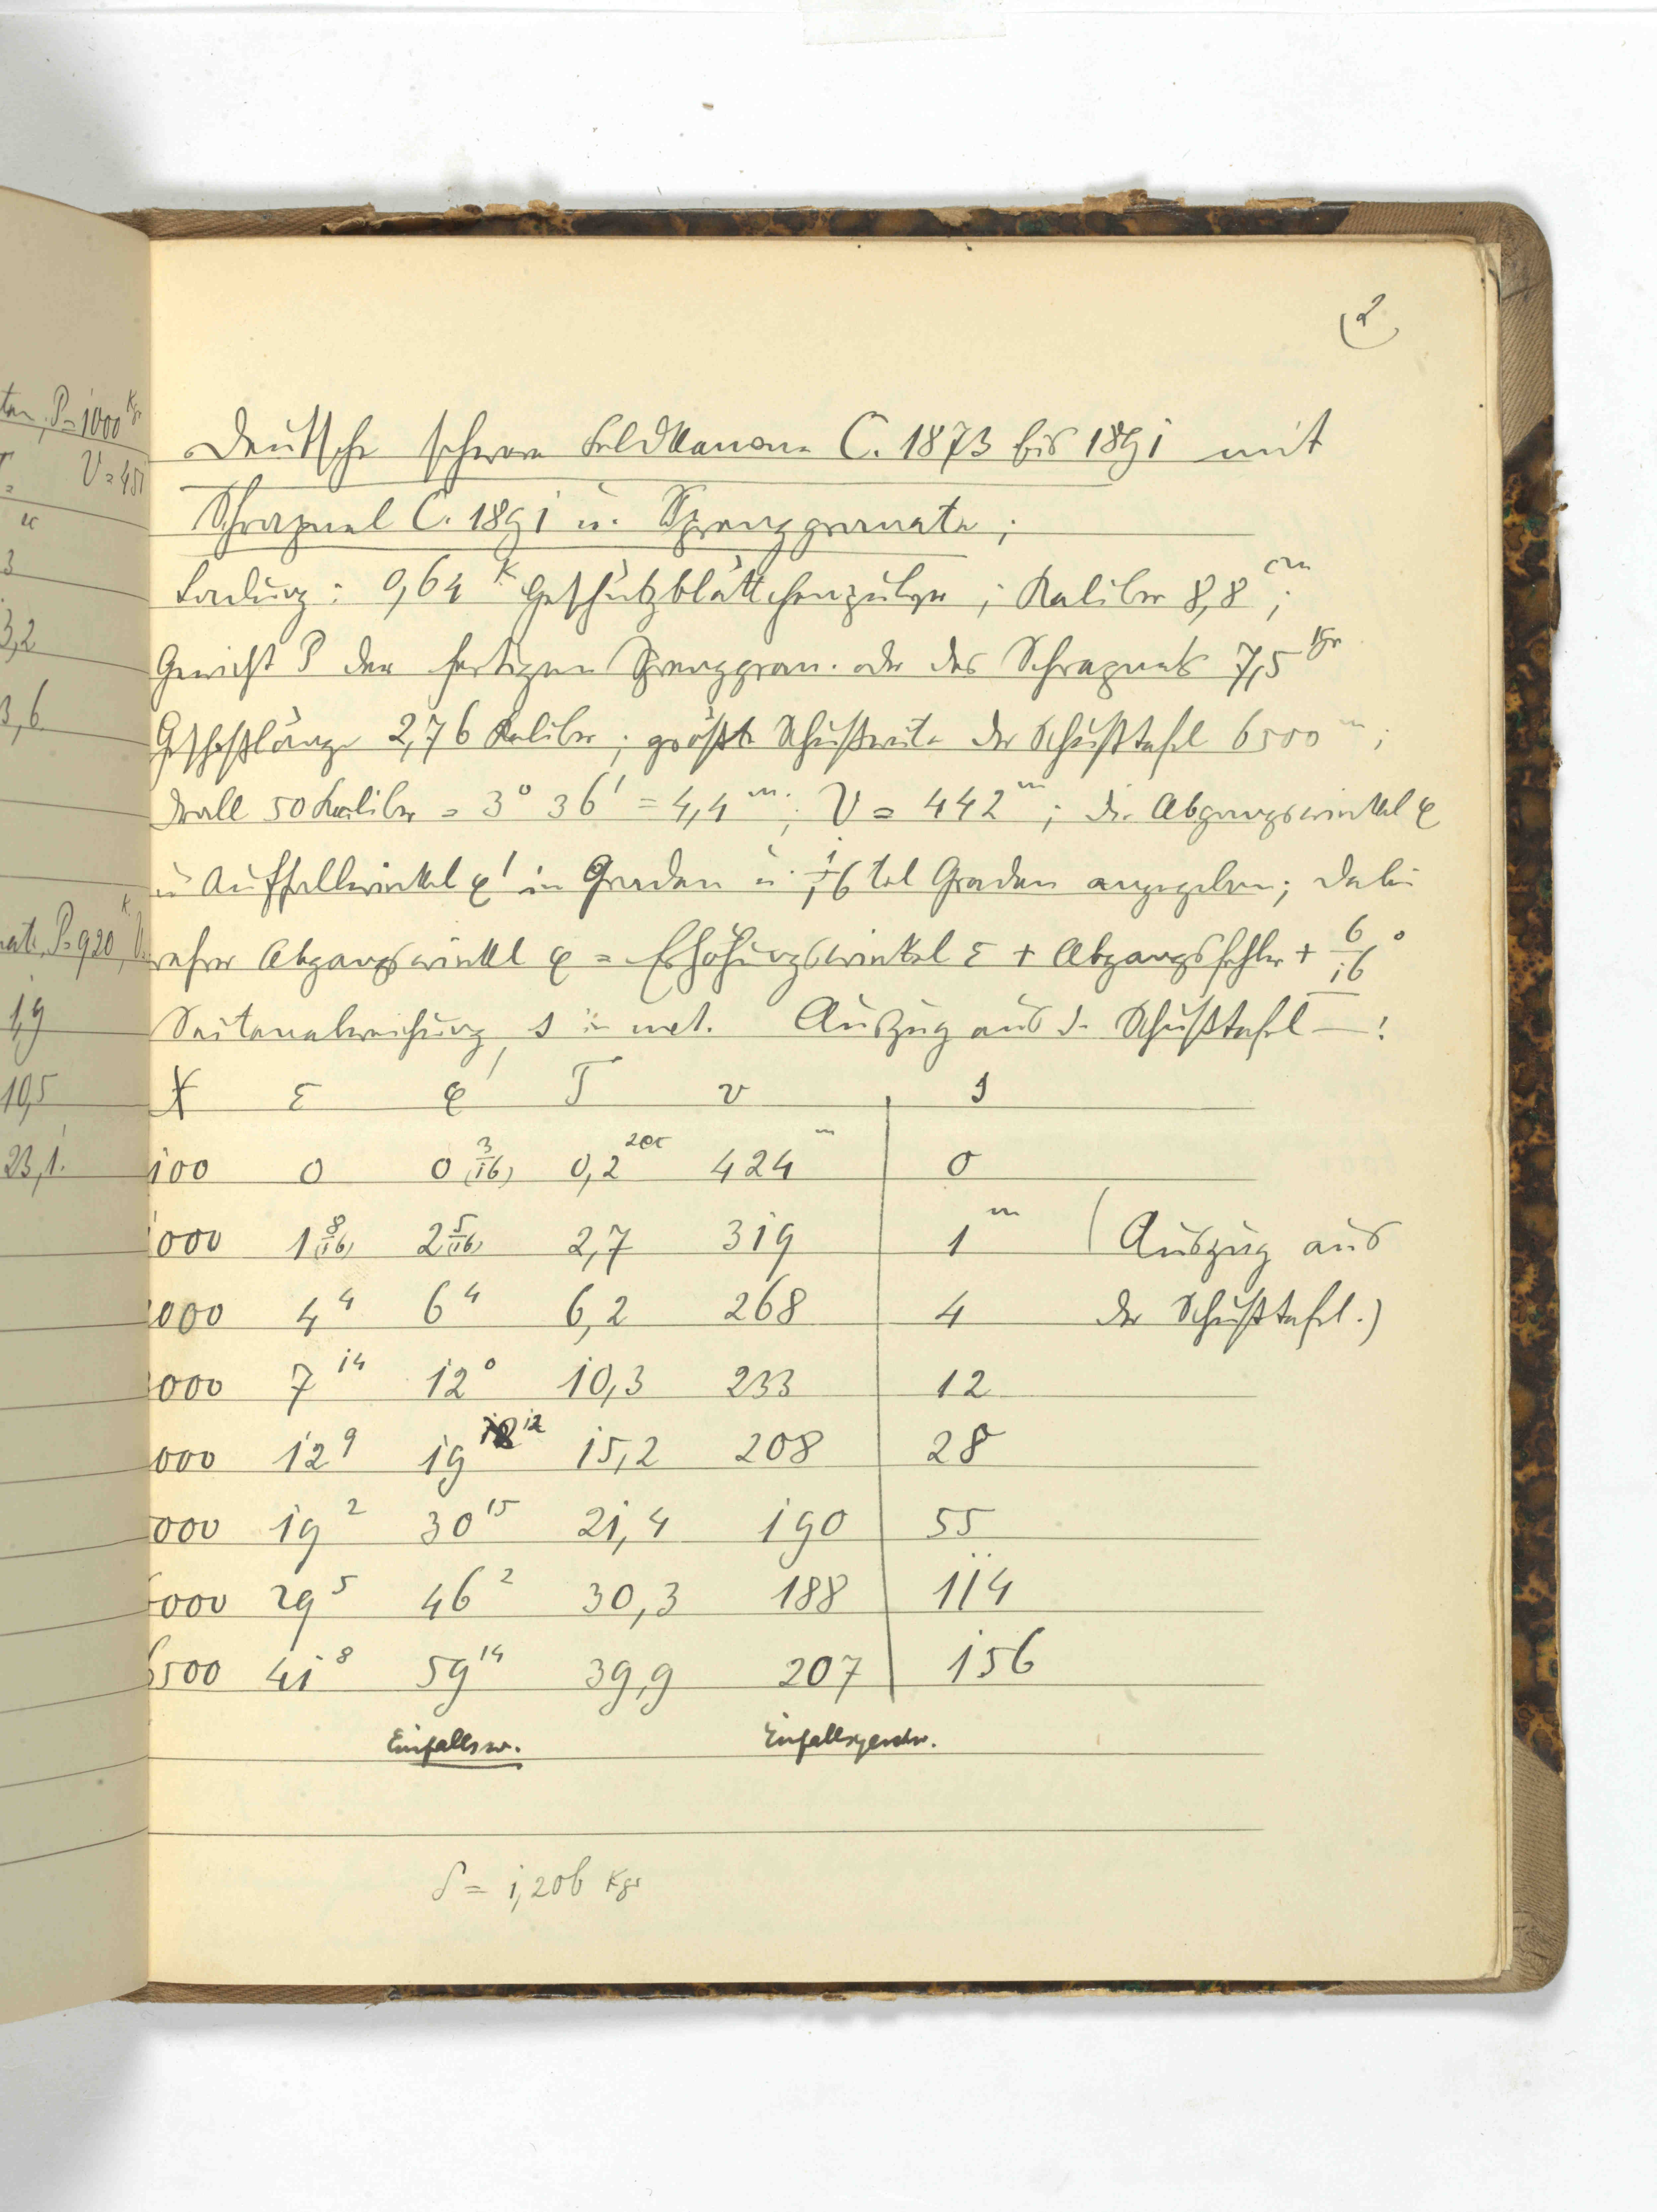 2
Deutsche schwere Feldkanone C. 1873 bis 1891 mit
Schrapnel C. 1891 u. Sprenggranate;
Ladung: 0,64 K Geschützblättchenpulver; Kaliber 8,8 cm;
Gewicht P der fertigen Spreng gran. oder des Schrapnels 7,5 Kgr
Geschoßlänge 2,76 Kaliber; größte Schußweite der Schußtafel 6500 m;
Drall 50 Kaliber = 3° 36' = 4,4 m; V = 442 m; die Abgangswinkel φ
u. Auffallwinkel φ' in Graden u. 1/16 tel Graden angegeben; dabei
Abgangswinkel φ = Erhöhungswinkel ε + Abgangsfehler + 6/16°
Seitenabweichung s in met. Auszug aus d. Schußtafel —:
X ε φ' T v s
100 0 0 3/(16) 0,2 sec 424 m 0
000 1 8/(16) 2 5/(16) 2,7 319 1 m (Auszug aus
000 4 4 6 4 6,2 268 4 der Schußtafel.)
000 7 14 12 0 10,3 233 12
000 12 9 19 12 15,2 208 28
000 19 2 30 15 21,4 190 55
6000 29 5 46 2 30,3 188 114
6500 41 8 59 14 39,9 207 156
Einfallsw. Einfallsgeschw.
δ = 1,206 Kgr
P = 1000 Kgr
V = 451
3
3,2
3,6
P = 920 K
1,9
10,5
23,1.